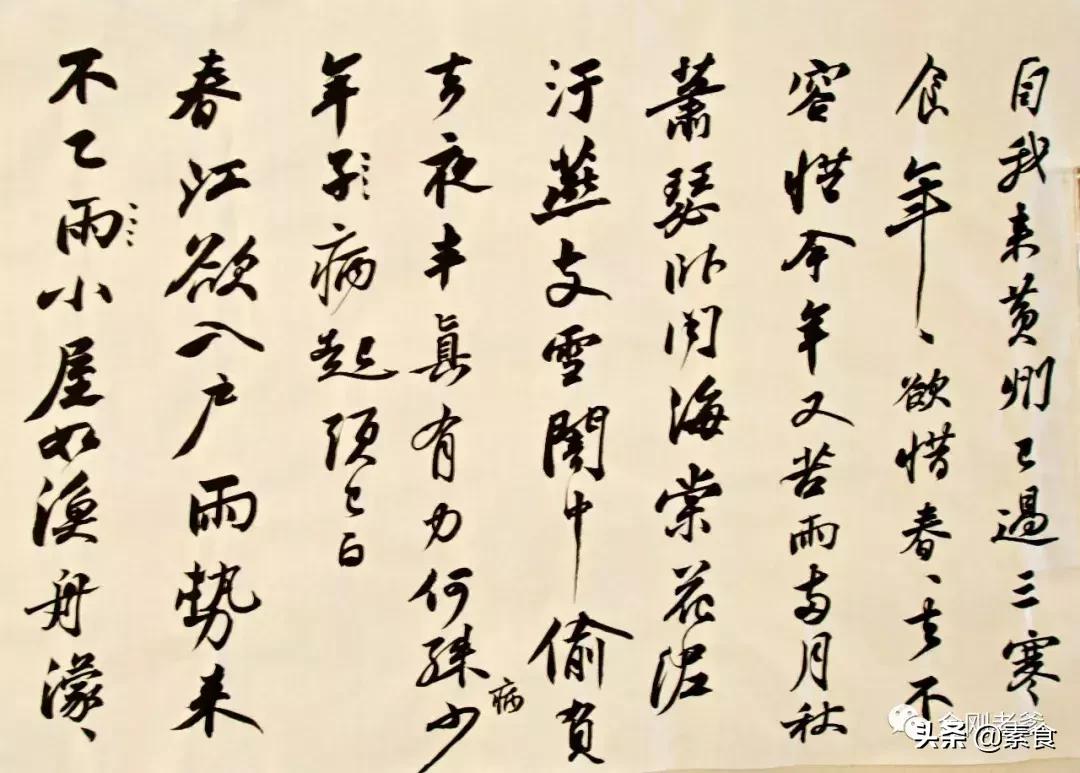 自我来黄州已過三寒
食年、欲惜春、去不
容惜今年又苦雨兩月秋
蕭瑟卧聞海棠花泥
汙燕支雪闇中偷負
去夜半真有力何殊少
病
年子病起須已白
春江欲入户雨勢来
不已雨小屋如漁舟濛、
金刚老爹
头条 @素食